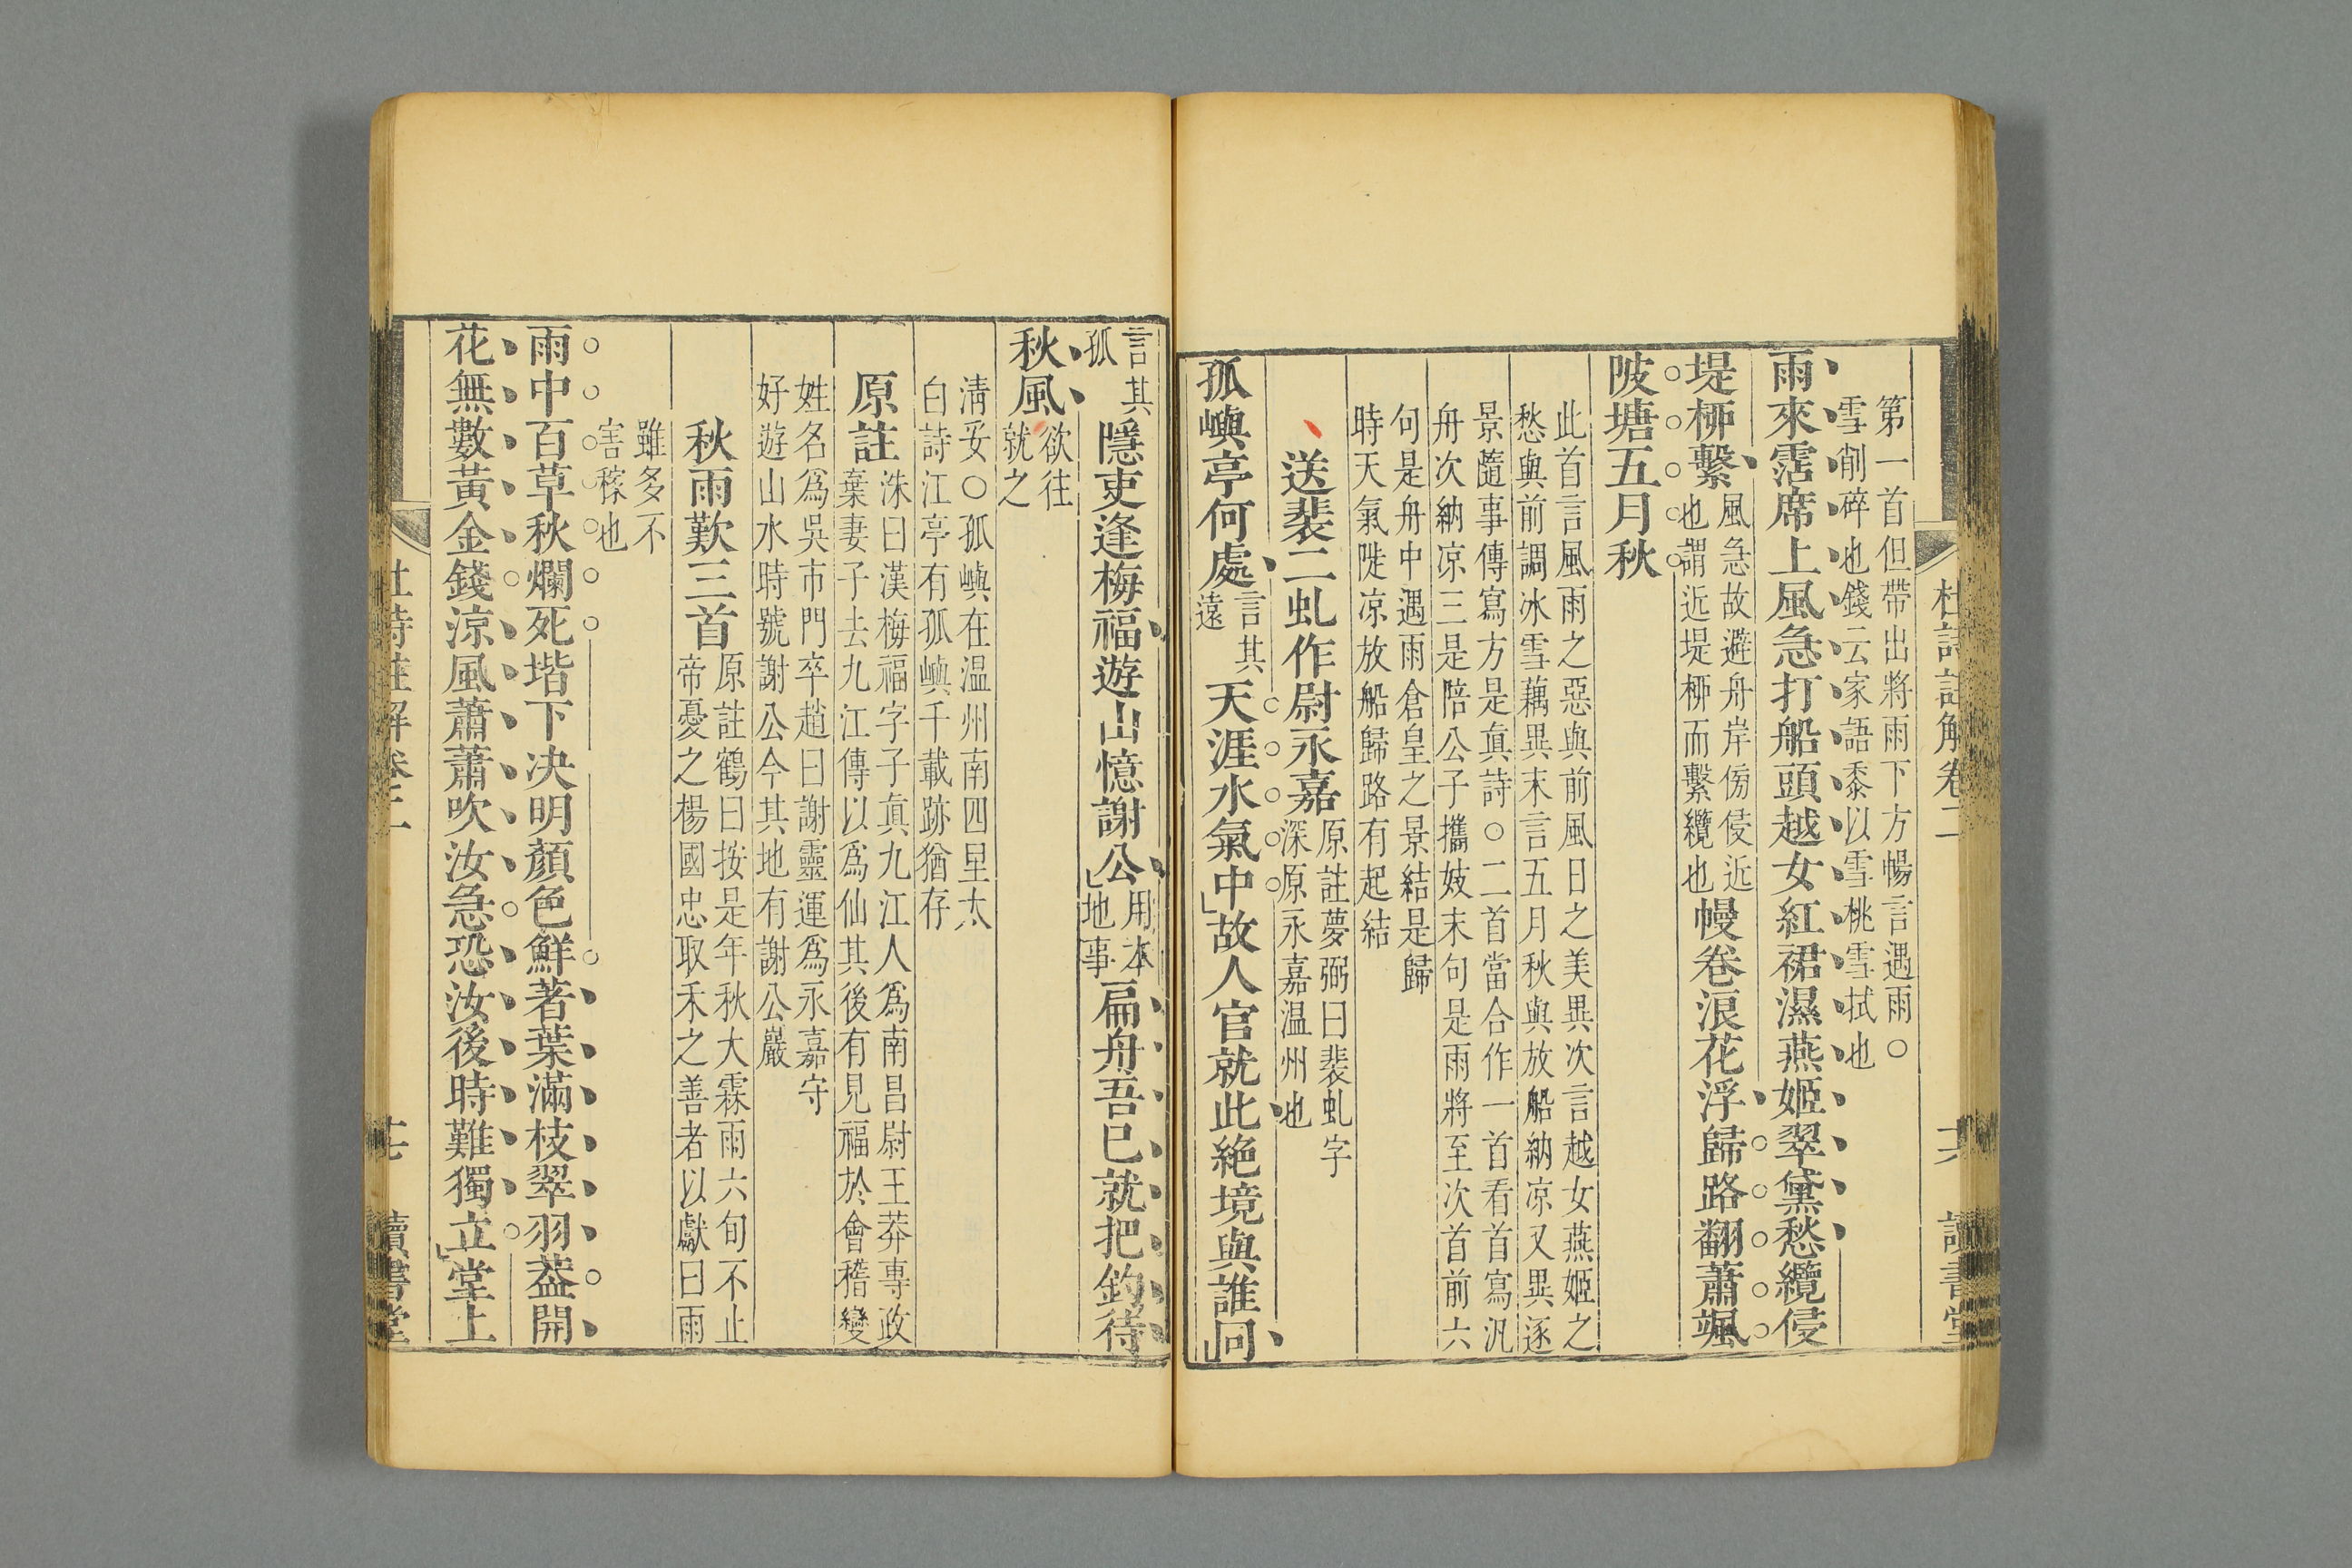 杜詩註解卷二 十六 讀書堂
第一首但帶出將雨下方暢言遇雨○
雪削碎也錢云家語黍以雪桃雪拭也
雨來霑席上風急打船頭越女紅裙濕燕姬翠黛愁纜侵
堤栁繫風急故避舟岸傍侵近也謂近堤栁而繫纜也幔卷浪花浮歸路翻蕭颯
陂塘五月秋
此首言風雨之惡與前風日之美異次言越女燕姬之
愁與前調冰雪藕異末言五月秋與放船納凉又異逐
景隨事傳寫方是眞詩○二首當合作一首看首寫汎
舟次納凉三是陪公子攜妓末句是雨將至次首前六
句是舟中遇雨倉皇之景結是歸
時天氣陡凉放船歸路有起結
送裴二虬作尉永嘉原註夢弼曰裴虬字深原永嘉温州也
孤嶼亭何處言其遠天涯水氣中故人官就此絶境與誰同
言其孤隱吏逢梅福遊山憶謝公用本地事扁舟吾已就把釣待
秋風欲往就之
淸妥○孤嶼在温州南四里太
白詩江亭有孤嶼千載跡猶存
原註洙曰漢梅福字子眞九江人爲南昌尉王莽專政棄妻子去九江傳以爲仙其後有見福於會稽變
姓名爲吳市門卒趙曰謝靈運爲永嘉守
好遊山水時號謝公今其地有謝公巖
秋雨歎三首原註鶴曰按是年秋大霖雨六旬不止帝憂之楊國忠取禾之善者以獻曰雨
雖多不
害稼也
雨中百草秋爛死堦下决明顏色鮮著葉滿枝翠羽葢開
花無數黃金錢凉風蕭蕭吹汝急恐汝後時難獨立堂上
杜詩註解卷二 十七 讀書堂